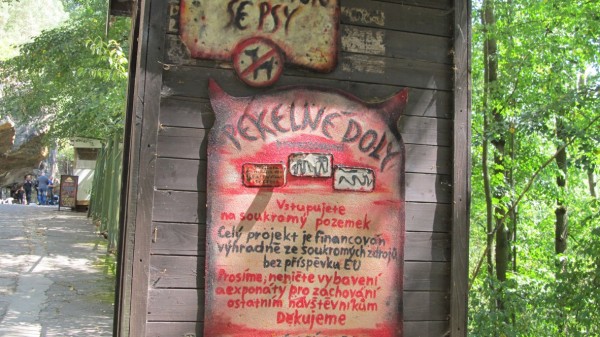 SE PSY
PEKELNÉ DOLY
Vstupujete
na soukromý pozemek
Celý projekt je financován
výhradně ze soukromých zdrojů
bez příspěvku EU
Prosíme, neničte vybavení
a exponáty pro zachování
ostatním návštěvníkům
Děkujeme